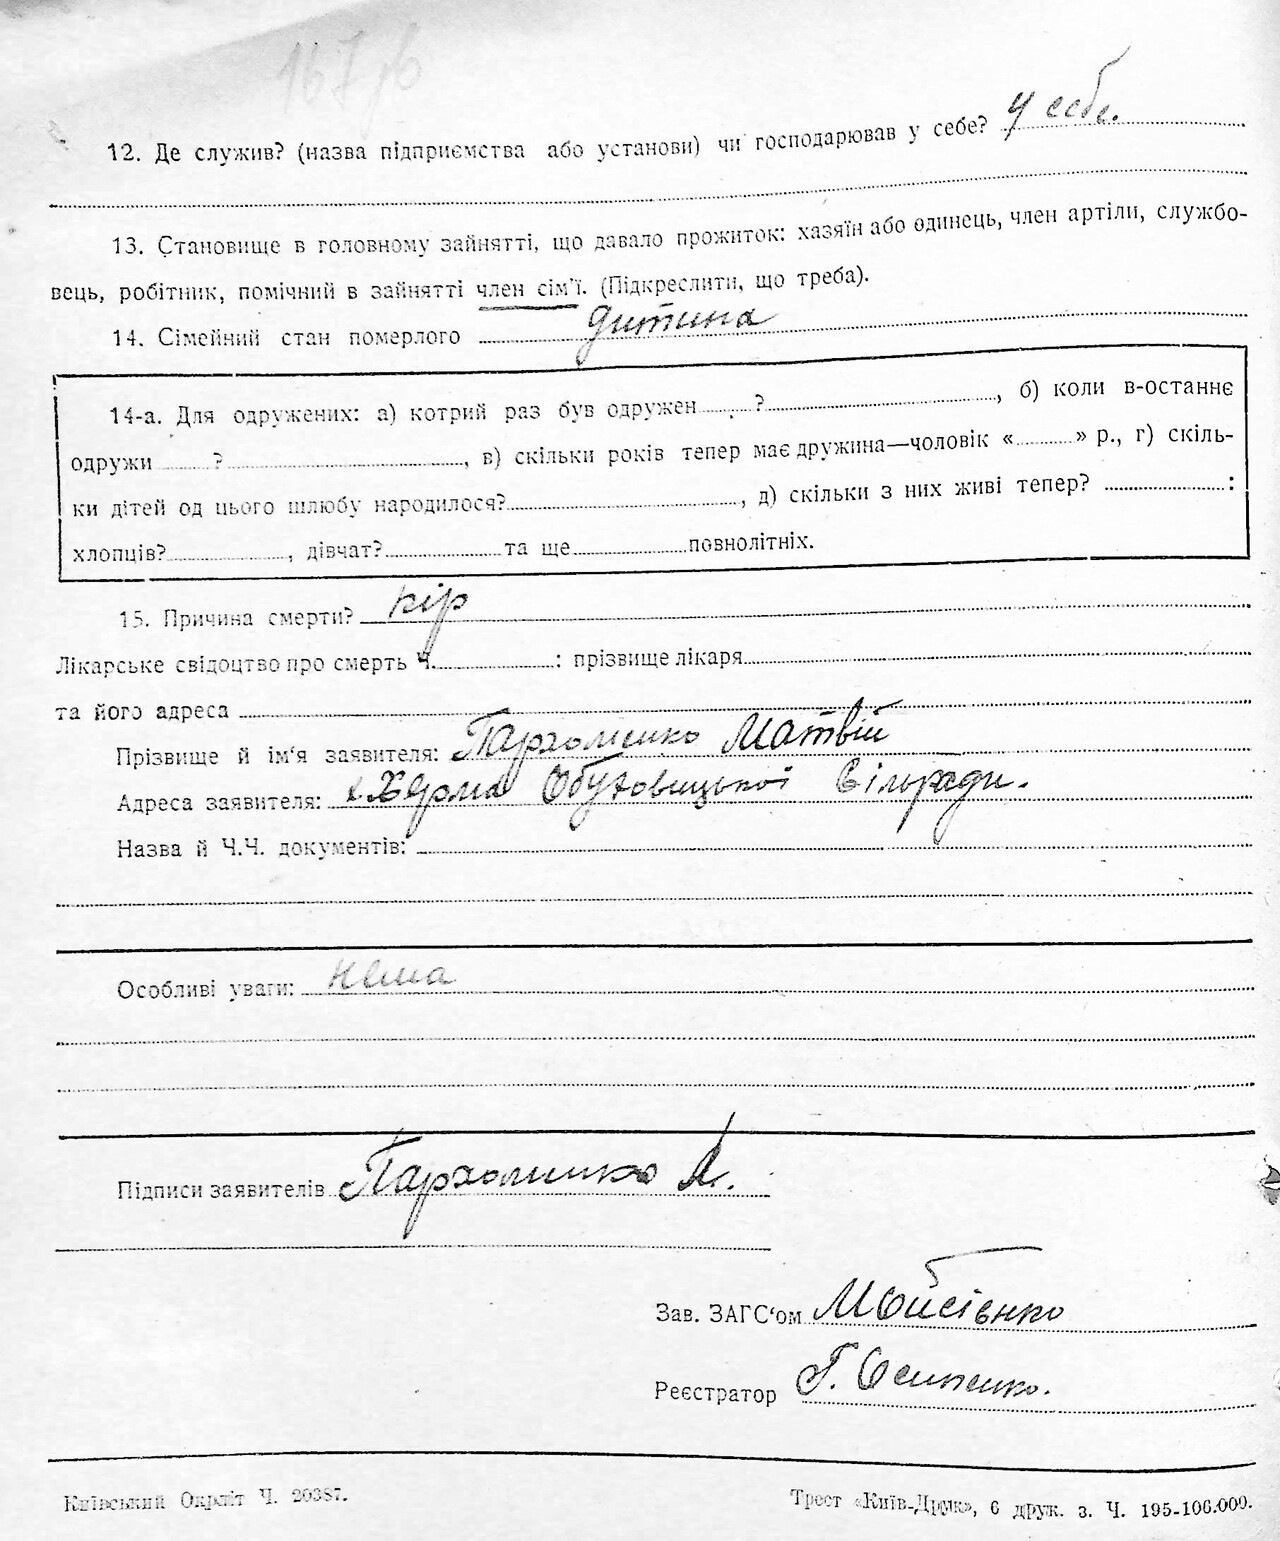 12. Де служив? (назва підприємства або установи) чи господарював у себе? У себе.
13. Становище в головному зайнятті, що давало прожиток: хазяїн або одинець, член артілі, службо-
вець, робітник, помічний в зайнятті член сім'ї. (Підкреслити, що треба).
14. Сімейний стан померлого дитина
14-а. Для одружених: а) котрий раз був одружен ? , б) коли в-останнє
одружи ? , в) скільки років тепер має дружина—чоловік « » р., г) скіль-
ки дітей од цього шлюбу народилося? , д) скільки з них живі тепер? :
хлопців? , дівчат? та ще повнолітніх.
15. Причина смерти? кір
Лікарське свідоцтво про смерть Ч. : прізвище лікаря
та його адреса
Прізвище й ім'я заявителя: Пархоменко Матвій
Адреса заявителя: Обуховицької Сільради.
Назва й Ч.Ч. документів:
Особливі уваги: нема
Підписи заявителів Пархоминко
Зав. ЗАГС'ом Мойсієнко
Реєстратор Г. Осипенко.
Київський Окрліт Ч. 20387.
Трест «Київ-Друк», 6 друк. з. Ч. 195-106.000.